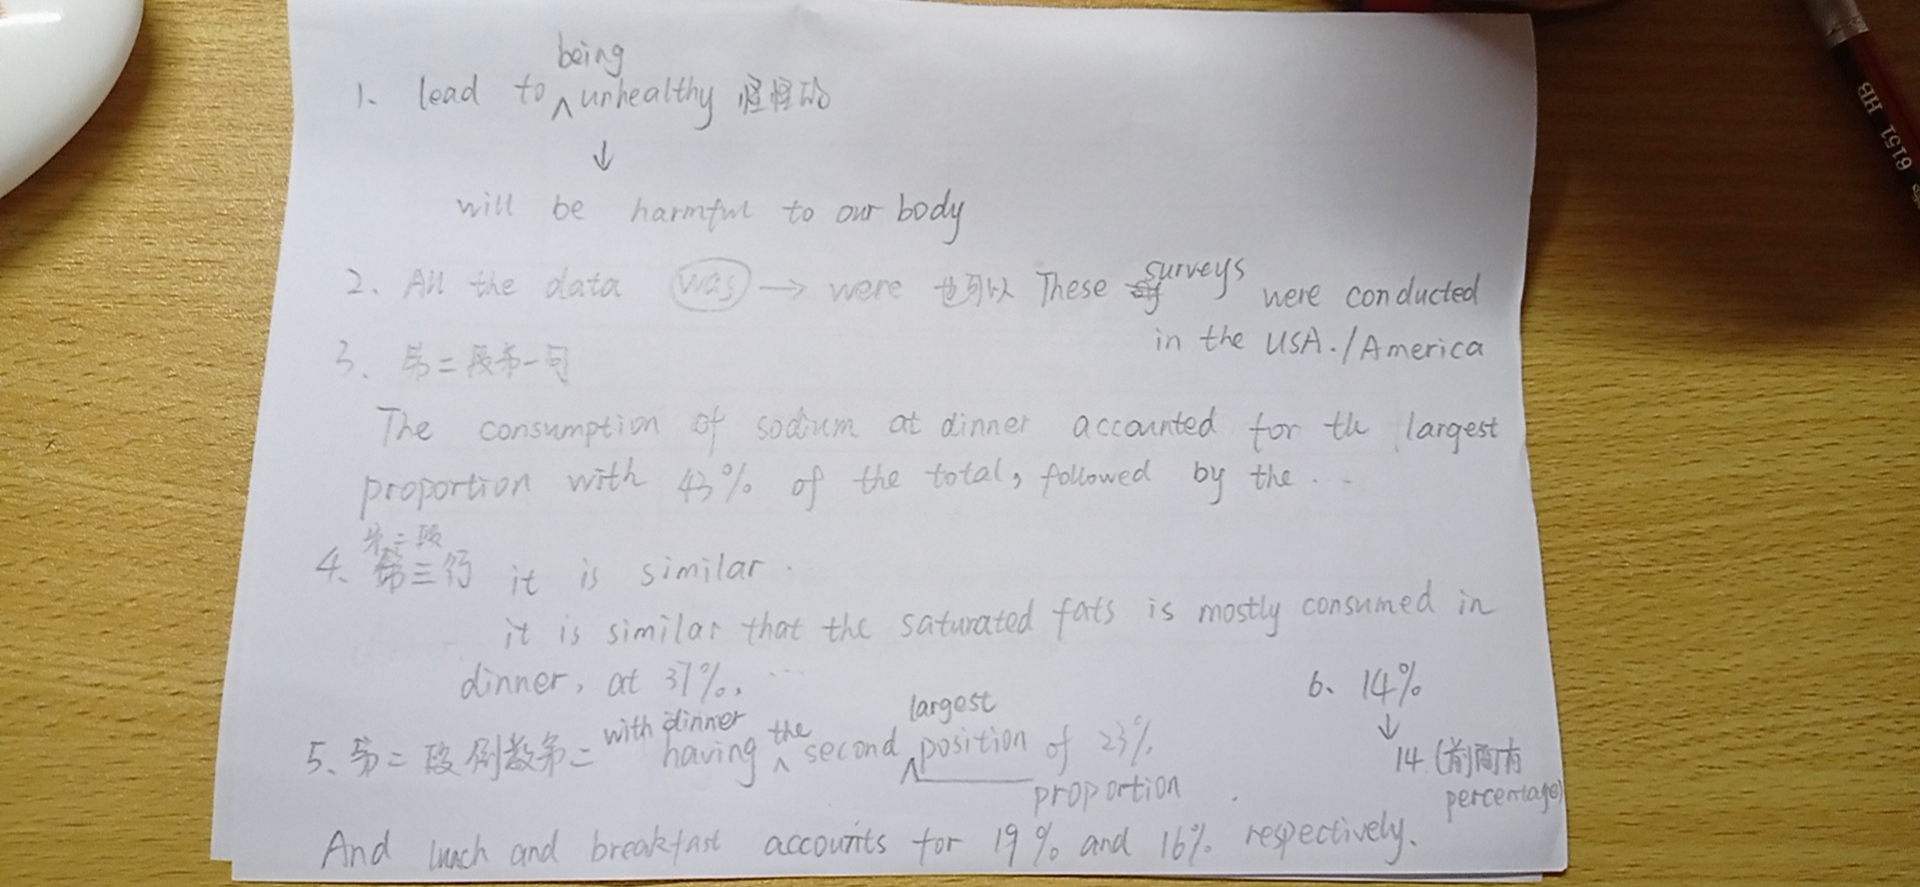 being
1. lead to ^ unhealthy 怪怪的
↓
will be harmful to our body
2. All the data was → were 也可以 These surveys were conducted
in the USA. / America
3. 第二段第一句
The consumption of sodium at dinner accounted for the largest
proportion with 43% of the total, followed by the ...
第二段
4. 第三行 it is similar.
it is similar that the saturated fats is mostly consumed in
dinner, at 37%, ...
6. 14%
↓
14 (前面有
percentage)
with dinner the largest
5. 第二段倒数第二 having ^ second ^ position of 23%
proportion.
And lunch and breakfast accounts for 19% and 16% respectively.
6151 HB